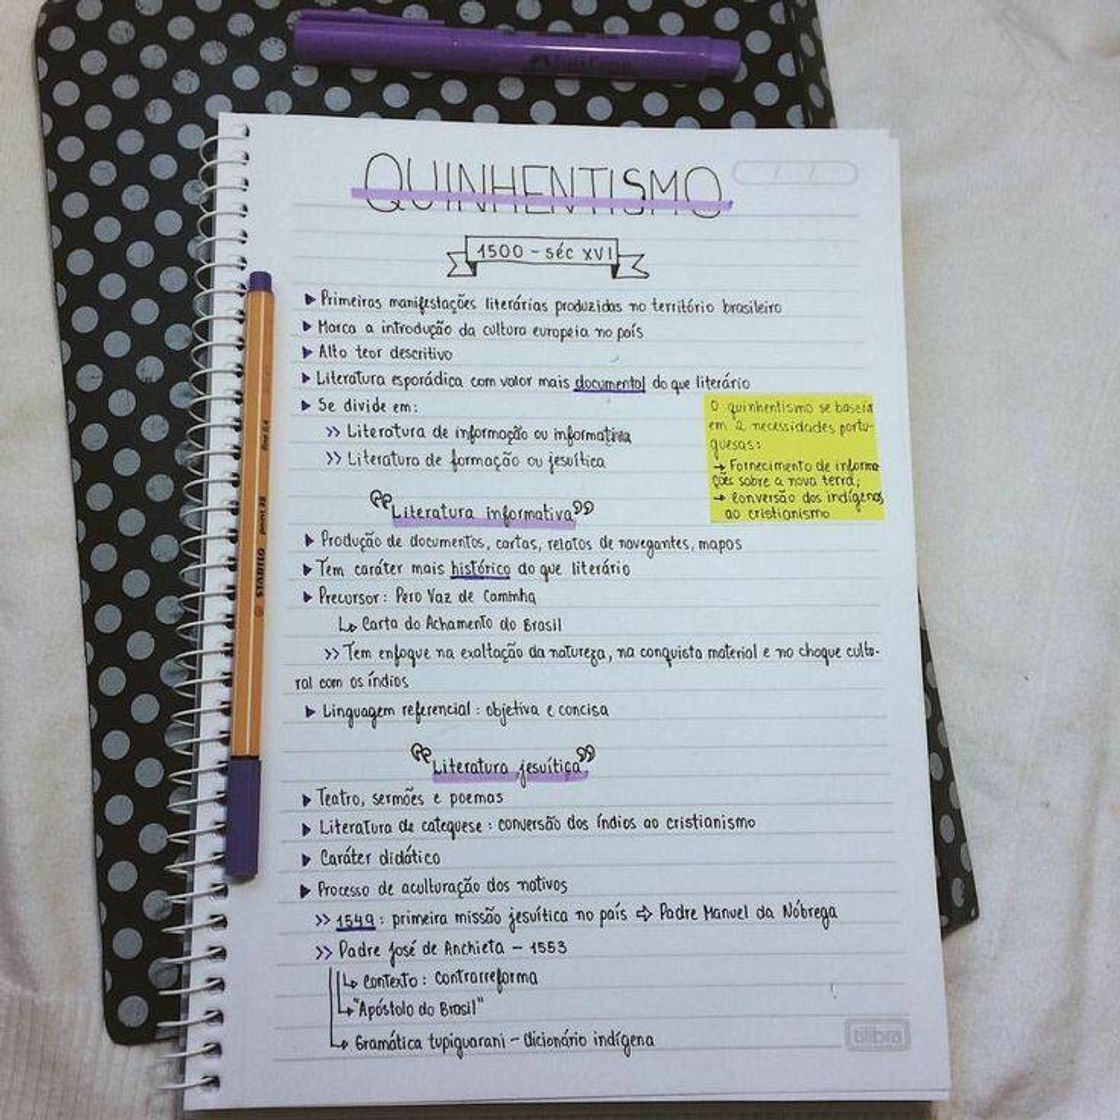 QUINHENTISMO
1500 - séc XVI
Primeiras manifestações literárias produzidas no território brasileiro
Marca a introdução da cultura europeia no país
Alto teor descritivo
Literatura esporádica com valor mais documental do que literário
Se divide em:
>> Literatura de informação ou informativa
>> Literatura de formação ou jesuítica
O quinhentismo se baseia
em 2 necessidades portu-
guesas:
→ Fornecimento de informa
ções sobre a nova terra;
→ Conversão dos indígenas
ao cristianismo
Literatura informativa
Produção de documentos, cartas, relatos de navegantes, mapas
Tem caráter mais histórico do que literário
Precursor: Pero Vaz de Caminha
↳ Carta do Achamento do Brasil
>> Tem enfoque na exaltação da natureza, na conquista material e no choque cultu-
ral com os índios
Linguagem referencial: objetiva e concisa
Literatura jesuítica
Teatro, sermões e poemas
Literatura de catequese: conversão dos índios ao cristianismo
Caráter didático
Processo de aculturação dos nativos
>> 1549: primeira missão jesuítica no país ⇨ Padre Manuel da Nóbrega
>> Padre José de Anchieta - 1553
↳ Contexto: Contrarreforma
↳ "Apóstolo do Brasil"
↳ Gramática tupiguarani - dicionário indígena
tilibra
STABILO point 88